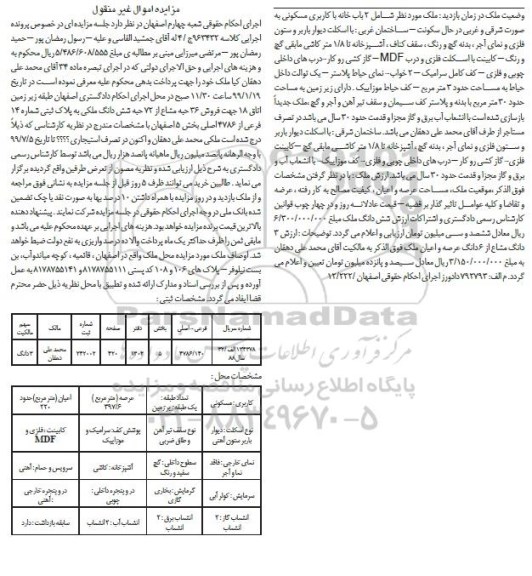 مزایده اموال غیر منقول
اجرای احکام حقوقی شعبه چهارم اصفهان در نظر دارد جلسه مزایده ای در خصوص پرونده
اجرایی کلاسه ۹۶۴۳۳ج/۴ له آقای جمشید القاسی و علیه – رسول رمضان پور – حمید
رمضان پور – مرتضی میرزایی مبنی بر مطالبه ی مبلغ ۵/۴۸۶/۶۰۸/۵۵۵ ریال محکوم به
و هزینه های اجرایی و حق الاجرای دولتی که در اجرای تبصره ماده ۳۴ آقای محمد علی
دهقان کیا ملک خود را جهت پرداخت بدهی محکوم علیه معرفی نموده است در تاریخ
۹۹/۱/۱۹ ساعت ۱۱/۳۰ صبح در محل اجرای احکام دادگستری اصفهان طبقه زیر زمین
اتاق ۱۸ جهت فروش ۳۶ حبه مشاع از ۷۲ حبه شش دانگ ملکی به پلاک ثبتی شماره ۱۴
فرعی از ۴۷۸۶ اصلی بخش ۵ اصفهان با مشخصات مندرج در نظریه کارشناسی که ذیلاً
درج شده است ملکی محمد علی دهقان و اکنون در تصرف استیجاری ؟؟؟؟ تا تاریخ ۹۹/۷/۵
با وجه الرهانه پانصد میلیون ریال ماهیانه پانصد هزار ریال می باشد توسط کارشناس رسمی
دادگستری به شرح ذیل ارزیابی شده و نظریه مصون از تعرض طرفین واقع گردیده برگزار
می نماید. طالبین خرید می توانند ظرف ۵ روز قبل از جلسه مزایده به نشانی فوق مراجعه
و از ملک بازدید و در روز مزایده با همراه داشتن ۱۰ درصد بها به صورت نقد یا چک تضمین
شده بانک ملی در وجه اجرای احکام حقوقی در جلسه مزایده شرکت نمایند. پیشنهاد دهنده
بالاترین قیمت برنده مزایده خواهد بود. هزینه های اجرایی بر عهده محکوم علیه می باشد و
مابقی ثمن را ظرف حداکثر یک ماه پرداخت والا ده درصد واریزی به نفع دولت ضبط خواهد
شد. اوصاف ملک مورد مزایده محل ملک واقع در اصفهان، قائمیه، کوچه میاندوآب، بن
بست نیلوفر – پلاک های ۱۰۶ و ۱۰۸ کدپستی ۸۱۷۸۷۵۵۱۱۱ و ۸۱۷۸۷۵۵۱۴۱ به عمل
آورده و پس از بررسی اسناد و مدارک ارائه شده و تطبیق با محل نظریه ذیل حضر محترم
قضا ایفاد می گردد. مشخصات ثبتی:
شماره سریال | فرعی - اصلی | بخش | دفتر | صفحه | شماره ثبت | مالک | سهم مالکیت
۴۷۸۶/۱۴۰ | ۵ | ۳۲۰ | ۲۴۲۰۰۲ | محمد علی دهقان | ۳ دانگ
مشخصات محل:
کاربری: مسکونی | تعداد طبقه: یک طبقه زیرزمین | عرصه (متر مربع) ۳۹۷/۶ | اعیان (متر مربع) حدود ۲۲۰
نوع اسکلت: دیوار باربر ستون آهنی | نوع سقف تیرآهن و طاق ضربی | پوشش کف: سرامیک و موزاییک | کابینت: فلزی و MDF
نمای خارجی: فاقد نما و آجر | سطوح داخلی: گچ سفید و رنگ | آشپزخانه: کاشی | سرویس و حمام: آهنی
سرمایش: کولر آبی | گرمایش: بخاری گازی | در و پنجره داخلی: چوبی | در و پنجره خارجی: آهنی
انشعاب گاز: ۲ انشعاب | انشعاب برق: ۲ انشعاب | انشعاب آب: ۲ انشعاب | سابقه بازداشت: دارد
وضعیت ملک در زمان بازدید: ملک مورد نظر شامل ۲ باب خانه با کاربری مسکونی به
صورت شرقی و غربی در حال سکونت – ساختمان غربی: با اسکلت دیوار باربر و ستون
فلزی و نمای آجر، بدنه گچ و رنگ، سقف کناف، آشپزخانه تا ۱/۸ متر کاشی مابقی گچ
و رنگ – کابینت با اسکلت فلزی و درب MDF – گاز کشی رو کار – درب های داخلی
چوبی و فلزی – کف کامل سرامیک – ۲ خواب – نمای حیاط پلاستر – یک توالت داخل
حیاط به مساحت حدود ۳ متر مربع – کف حیاط موزاییک. دارای زیر زمین به مساحت
حدود ۳۰ متر مربع با بدنه و پلاستر کف سیمان و سقف تیر آهن و آجر و گچ، ملک جدیداً
بازسازی شده است با انشعاب آب برق و گاز مجزا و قدمت حدود ۳۰ سال می باشد در تصرف
مستاجر از طرف آقای محمد علی دهقان می باشد. ساختمان شرقی: با اسکلت دیوار باربر
و ستون فلزی و نمای آجر، بدنه گچ، آشپزخانه تا ۱/۸ متر کاشی مابقی گچ – کابینت
فلزی – گاز کشی رو کار – درب های داخلی چوبی و فلزی – کف موزاییک – با انشعاب آب و
برق و گاز مجزا و قدمت حدود ۳۰ سال می باشد ارزش ملک: با در نظر گرفتن مشخصات
فوق الذکر، موقعیت ملک، مساحت عرصه و اعیان، کیفیت مصالح به کار رفته، عرضه
و تقاضا و کلیه عوامل تاثیر گذار بر قضیه – قیمت عادلانه روز و در چهار چوب قوانین
کارشناس رسمی دادگستری و اشتراکات ارزش شش دانگ ملک مبلغ ۶/۳۰۰/۰۰۰/۰۰۰
ریال معادل ششصد و سی میلیون تومان ارزیابی و اعلام می گردد. توضیحات: ارزش ۳
دانگ مشاع از ۶ دانگ عرصه و اعیان ملک فوق الذکر به مالکیت آقای محمد علی دهقان
به مبلغ ۳/۱۵۰/۰۰۰/۰۰۰ ریال معادل سیصد و پانزده میلیون تومان تعیین و اعلام می
گردد. م الف: ۷۹۲۷۹۳ دادورز اجرای احکام حقوقی اصفهان ۱۲/۲۲۲/
ParsNamadData
۰۲۱-۸۸۳۴۹۶۷۰-۵